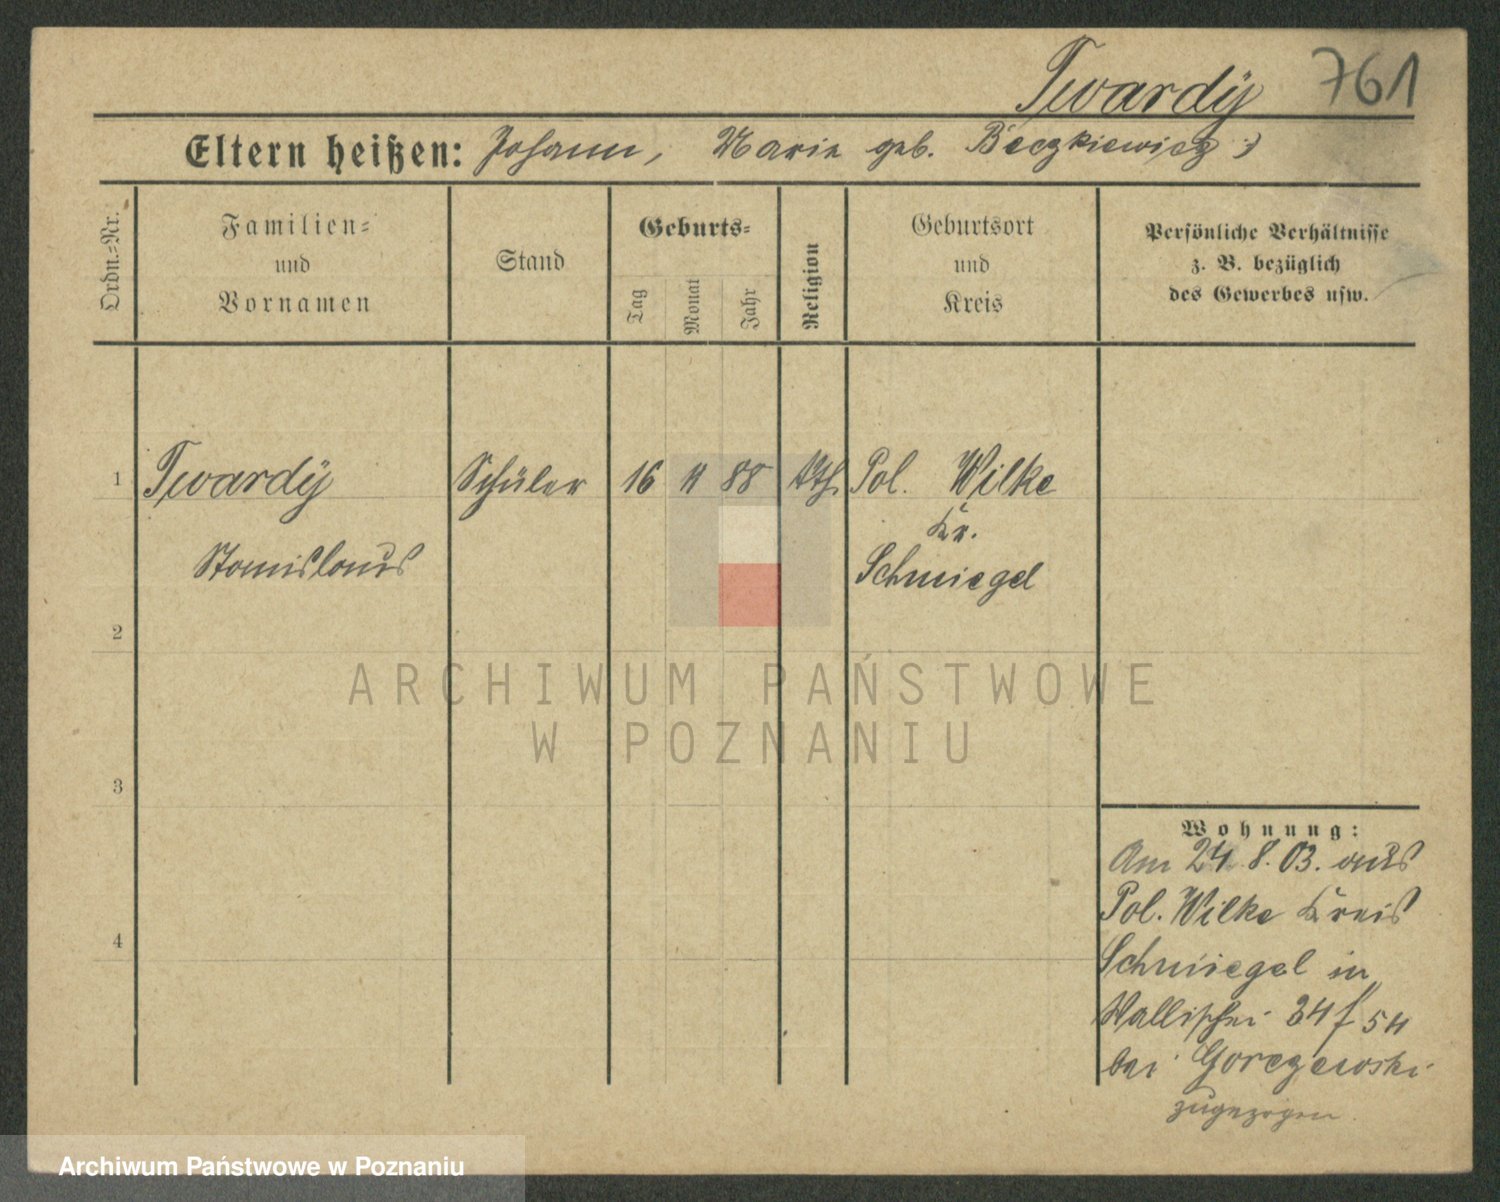 Twardÿ 761
Eltern heißen: Johann, Marie geb. Beczkiewicz
Ordn.-Nr.
Familien-
und
Vornamen
Stand
Geburts-
Tag
Monat
Jahr
Religion
Geburtsort
und
Kreis
Persönliche Verhältnisse
z. B. bezüglich
des Gewerbes usw.
1 Twardÿ Schüler 16 11 88 kth. Pol. Wilke
Kr.
Stanislaus Schmiegel
2
ARCHIWUM PAŃSTWOWE
W POZNANIU
3
Wohnung:
Am 24. 8. 03. aus
Pol. Wilke Kreis
4
Schmiegel in
Wallischei 54
bei Gorczewski
zugezogen.
Archiwum Państwowe w Poznaniu